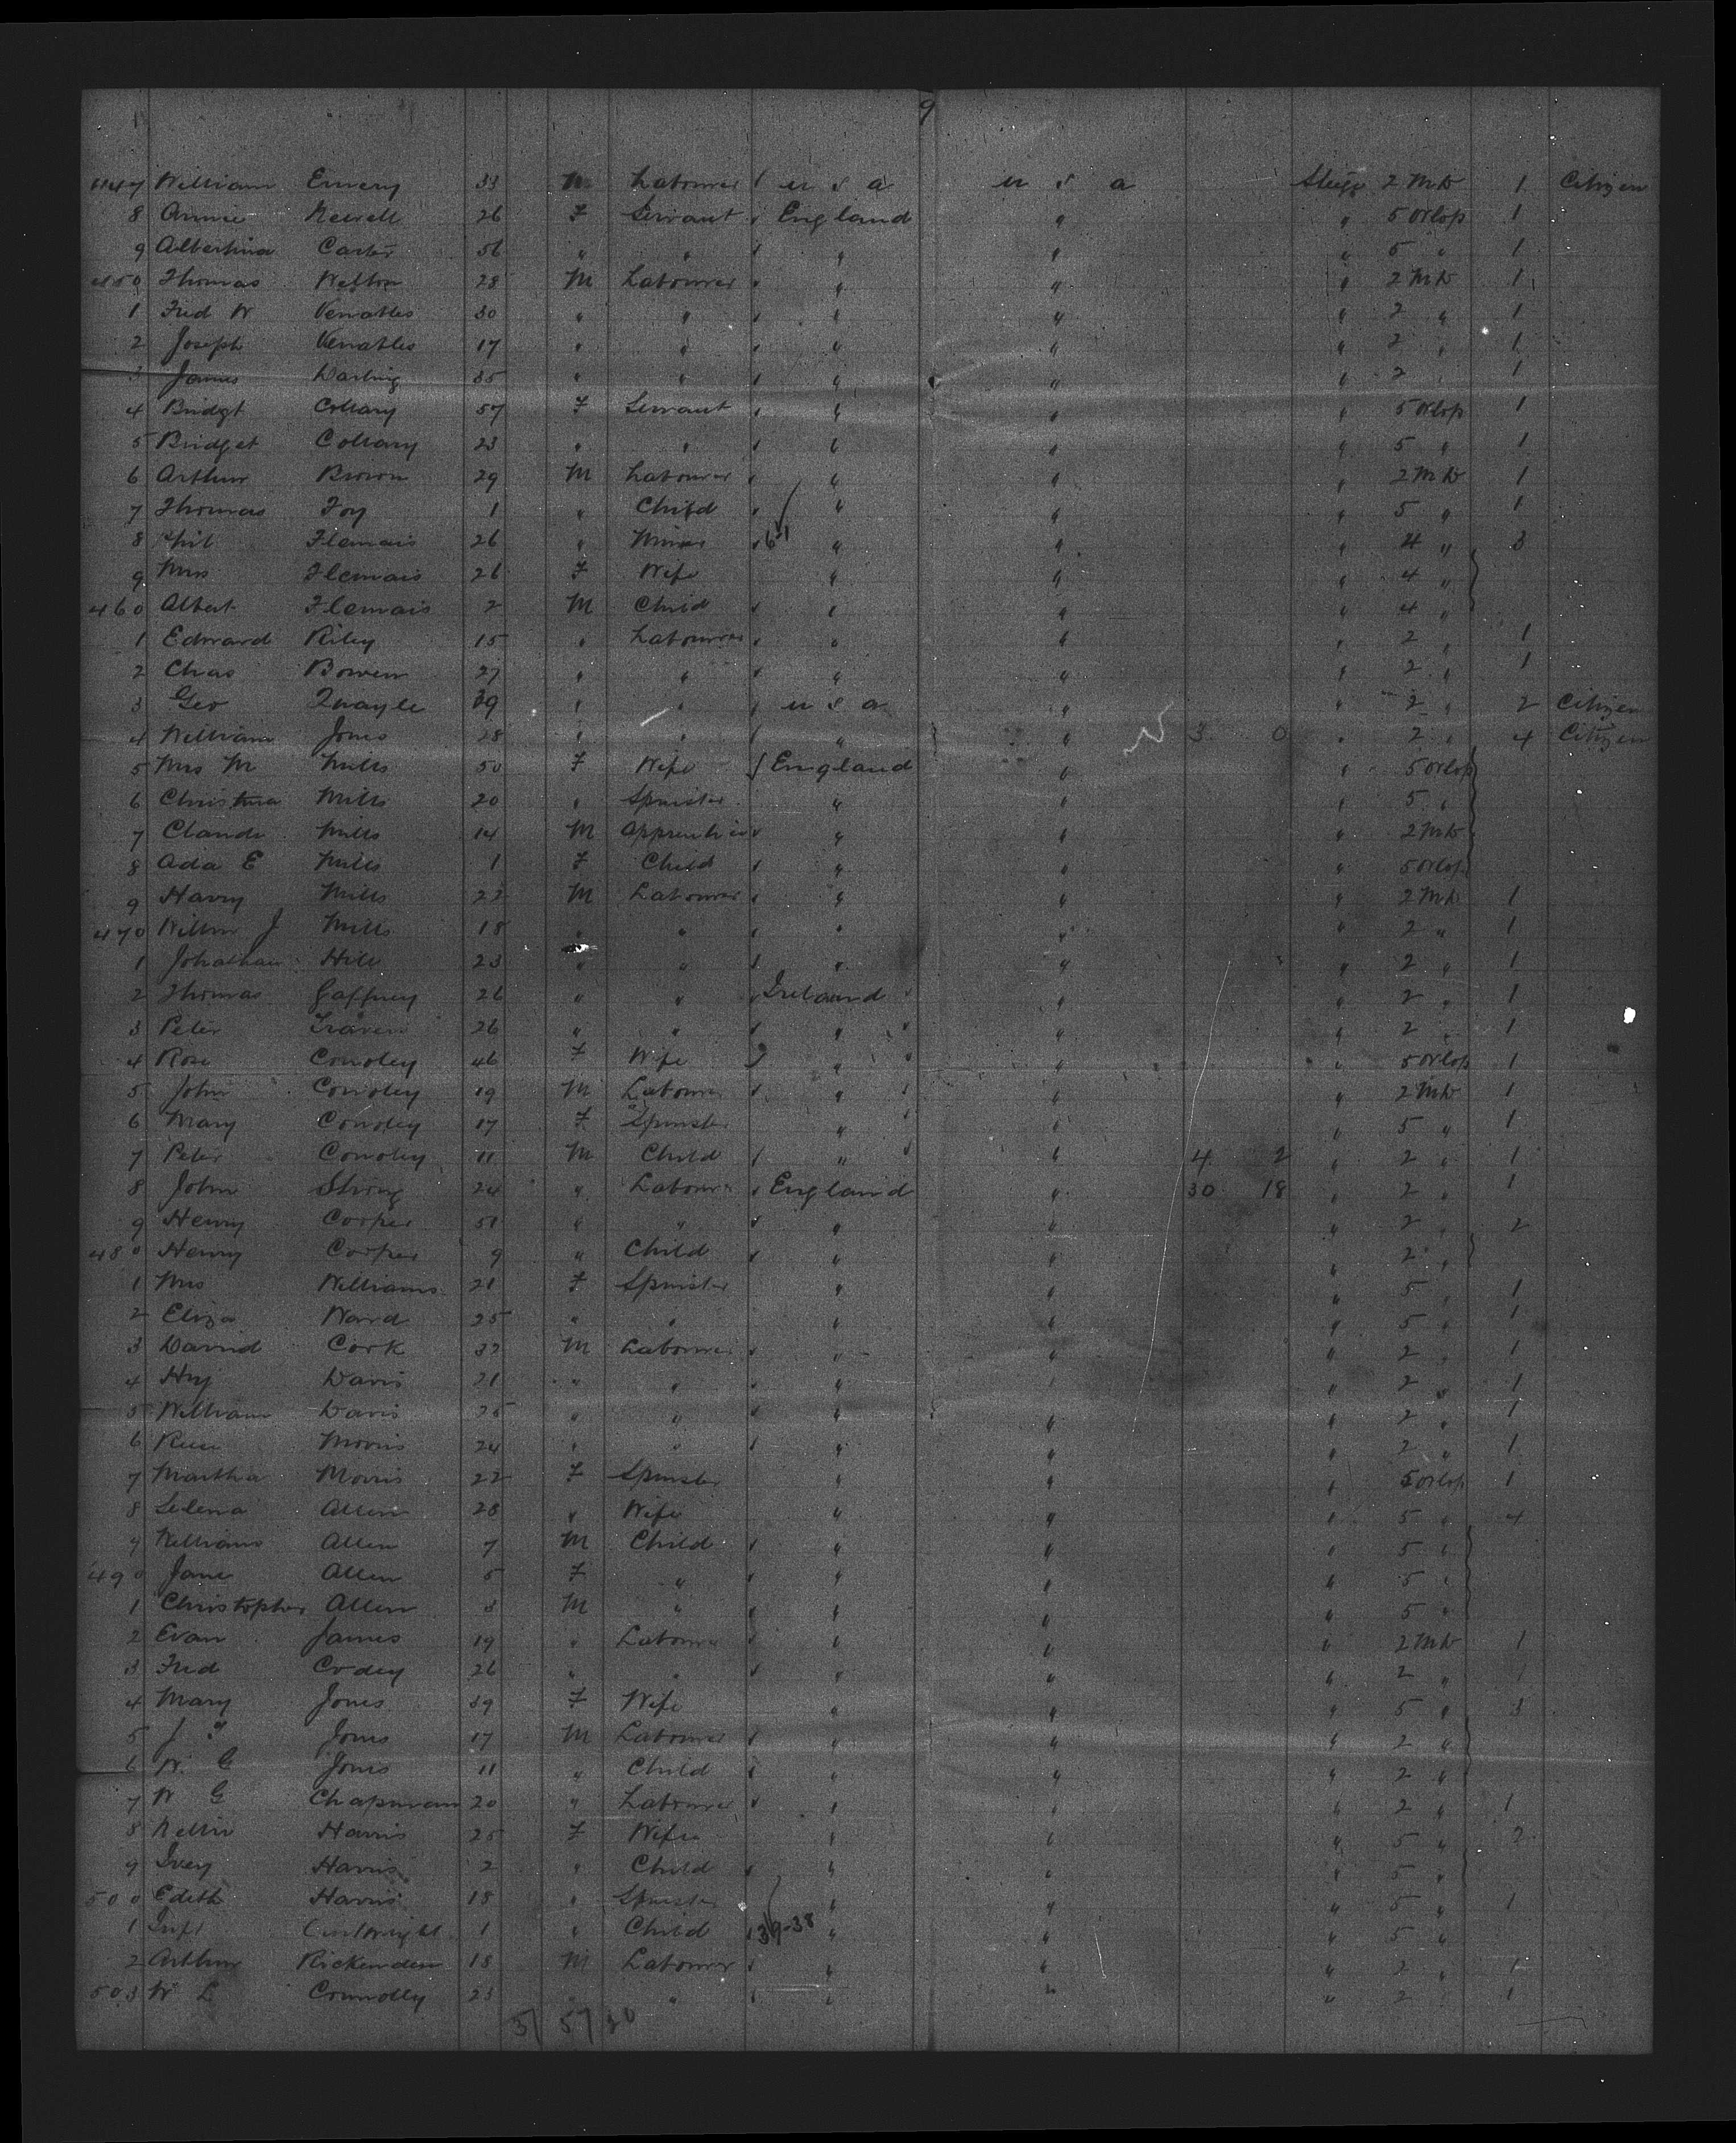 9
William Emery 33 Labourer u s a u s a Steige 2 Mts 1 Citizen
8 Annie Newell 26 F Servant England " " 5 Orlop 1
9 Albertina Carter 56 " " " " " 5 " 1
450 Thomas 28 M Labourer " " " 2 Mts 1
1 Fred W Venables 30 " " " " " 2 " 1
2 Joseph Venables 17 " " " " " 2 " 1
3 James Darling 35 " " " " " 2 " 1
4 Bridgt Collary 57 F Servant " " " 5 Orlop 1
5 Bridget Collary 23 " " " " " 5 " 1
6 Arthur Brown 29 M Labourer " " " 2 Mts 1
7 Thomas Foy 1 " Child " " " 5 " 1
8 Phil Flemais 26 " Miner 6-1 " " " 4 " 3
9 Mrs Flemais 26 F Wife " " " 4 "
460 Albert Flemais 2 M Child " " " 4 "
1 Edward Riley 15 " Labourer " " " 2 " 1
2 Chas Bowen 27 " " " " " 2 " 1
3 Geo Quayle 39 " " u s a " " 2 " 2 Citizen
4 William Jones 28 " " " " 3 0 " 2 " 4 Citizen
5 Mrs M Mills 50 F Wife England " " 5 Orlop
6 Christina Mills 20 " Spinster " " " 5 "
7 Claude Mills 14 M Apprentice " " " 2 Mts
8 Ada E Mills 1 F Child " " " 5 Orlop
9 Harry Mills 23 M Labourer " " " 2 Mts 1
470 J Mills 18 " " " " " 2 " 1
1 Johathan Hill 23 " " " " " 2 " 1
2 Thomas Gaffney 26 " " Ireland " " 2 " 1
3 Peter 26 " " " " " 2 " 1
4 Rose Conoley 46 F Wife " " " 5 Orlop 1
5 John Conoley 19 M Labourer " " " 2 Mts 1
6 Mary Conoley 17 F Spinster " " " 5 " 1
7 Peter Conoley 11 M Child " " 4 2 " 2 " 1
8 John String 24 " Labourer England " 30 18 " 2 " 1
9 Henry Cooper 51 " " " " " 2 " 2
480 Henry Cooper 9 " Child " " " 2 "
1 Mrs Williams 21 F Spinster " " " 5 " 1
2 Eliza Ward 25 " " " " " 5 " 1
3 David Cork 32 M Labourer " " " 2 " 1
4 Hy Davis 21 " " " " " 2 " 1
5 William Davis 25 " " " " " 2 " 1
6 Morris 24 " " " " " 2 " 1
7 Martha Morris 22 F Spinster " " " 5 Orlop 1
8 Selena Allen 28 " Wife " " " 5 " 4
9 William Allen 7 M Child " " " 5 "
490 Jane Allen 5 F " " " " 5 "
1 Christopher Allen 3 M " " " " 5 "
2 Evan James 19 " Labourer " " " 2 Mts 1
3 Fred Codey 26 " " " " " 2 " 1
4 Mary Jones 39 F Wife " " " 5 " 3
5 J Jones 17 M Labourer " " " 2 "
6 W. G Jones 11 " Child " " " 2 "
7 W G Chapman 20 " Labourer " " " 2 " 1
8 Nellie Harris 25 F Wife " " " 5 " 2
9 Ivey Harris 2 " Child " " " 5 "
500 Edith Harris 18 " Spinster " " " 5 " 1
1 Inft Cartwright 1 " Child 39-38 " " " 5 "
2 Arthur Rickenden 18 M Labourer " " " 2 " 1
503 W L Connolly 23 " " " " " 2 " 1